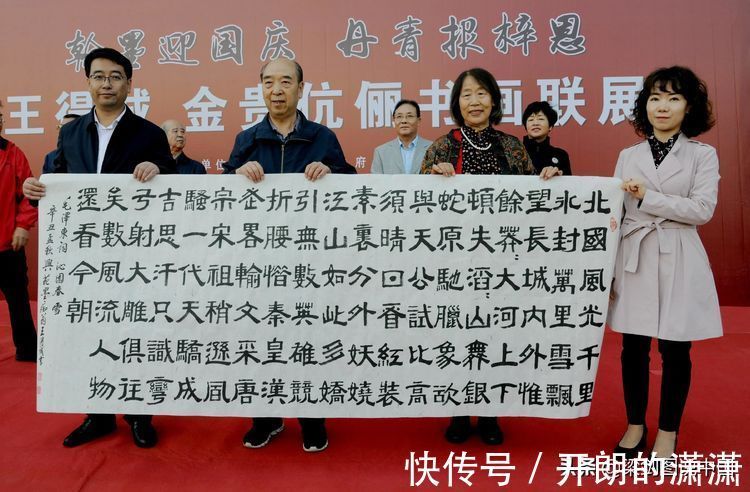 翰墨迎国庆 丹青报梓恩
王得 金贵 伉俪书画联展
单位
府
北國風光千里
氷封萬里雪飄
望長城内外惟
餘莽〻大河上下
頓失滔〻山舞銀
蛇原馳臘象欲
與天公試比高
須晴日看紅裝
素裏分外妖嬈
江山如此多嬌
引無數英雄競
折腰惜秦皇漢
武畧輸文采唐
宗宋祖稍遜風
騷一代天驕成
吉思汗只識彎
弓射大雕俱往
矣數風流人物
還看今朝
毛澤東詞 沁園春 雪
辛丑孟秋
快传号／开朗的潇潇